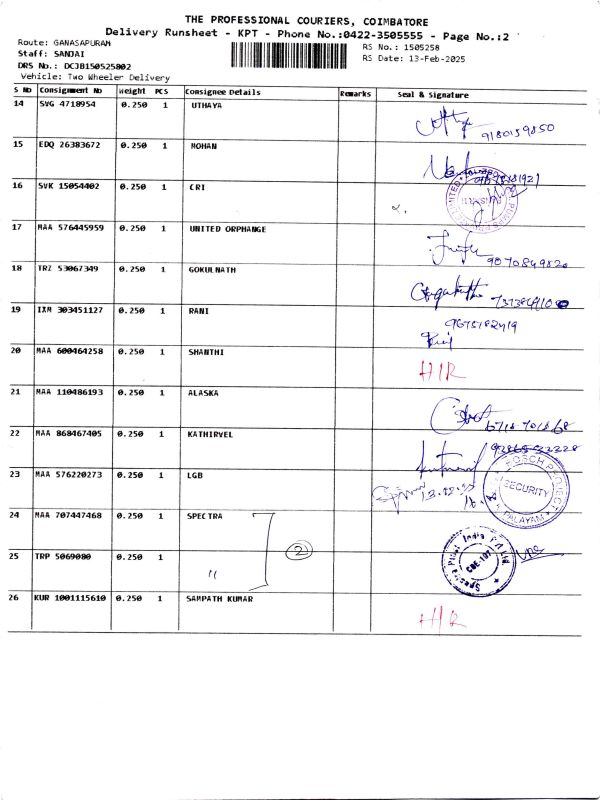 THE PROFESSIONAL COURIERS, COIMBATORE
Delivery Runsheet - KPT - Phone No.:0422-3505555 - Page No.:2
Route: GANASAPURAM
RS No.: 1505258
Staff: SANJAI
RS Date: 13-Feb-2025
DRS No.: DCJB150525802
Vehicle: Two Wheeler Delivery
S No Consignment No Weight PCS Consignee Details Remarks Seal & Signature
14 SVG 4718954 0.250 1 UTHAYA
9180159850
15 EDQ 26383672 0.250 1 MOHAN
16 SVK 15054402 0.250 1 CRI
17 MAA 576445959 0.250 1 UNITED ORPHANGE
9070849820
18 TRZ 53067349 0.250 1 GOKULNATH
19 IXM 303451127 0.250 1 RANI
9675182419
20 MAA 600464258 0.250 1 SHANTHI
H/R
21 MAA 110486193 0.250 1 ALASKA
22 MAA 868467405 0.250 1 KATHIRVEL
23 MAA 576220273 0.250 1 LGB
BOSCH PROJECT
SECURITY
PALAYAM
24 MAA 707447468 0.250 1 SPECTRA
2
Spectra Pipes India Pvt Ltd
CBE-107
25 TRP 5069080 0.250 1 "
26 KUR 1001115610 0.250 1 SAMPATH KUMAR
H/R